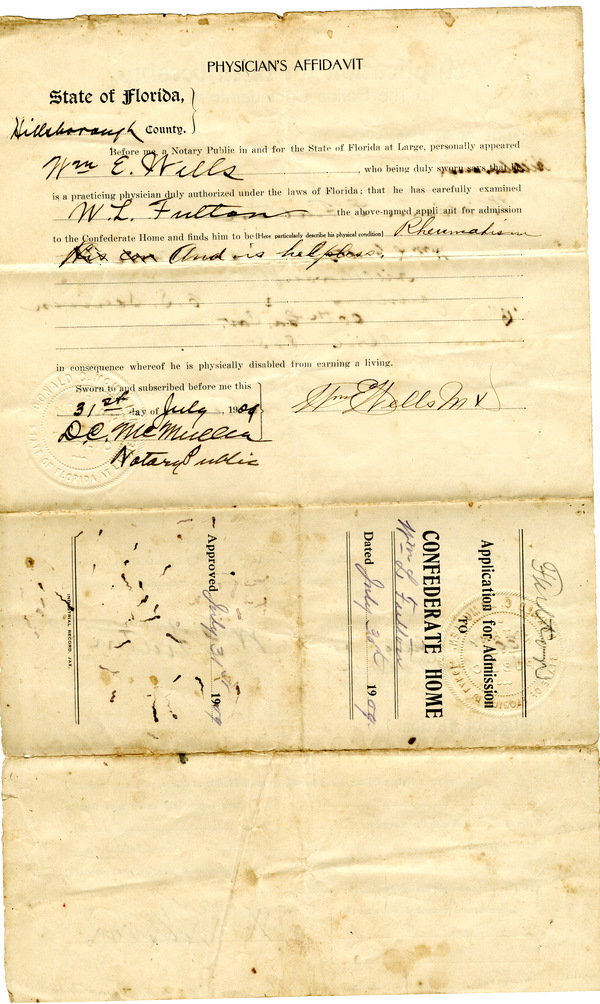 PHYSICIAN'S AFFIDAVIT
State of Florida,
Hillsborough County.
Before me, a Notary Public in and for the State of Florida at Large, personally appeared
Wm E. Wells, who being duly sworn says that
is a practicing physician duly authorized under the laws of Florida; that he has carefully examined
W. L. Fulton the above-named appli ant for admission
to the Confederate Home and finds him to be (Here particularly describe his physical condition) Rheumatism
His con And is helpless.
in consequence whereof he is physically disabled from earning a living.
Sworn to and subscribed before me this
31st day of July 1909
Wm E Wells M D
D.C. McMullen
Notary Public
Fulton
Application for Admission
TO
CONFEDERATE HOME
Wm L Fulton
Dated July 31st 1909.
Approved July 31st 1909
INDUSTRIAL RECORD, JAX.